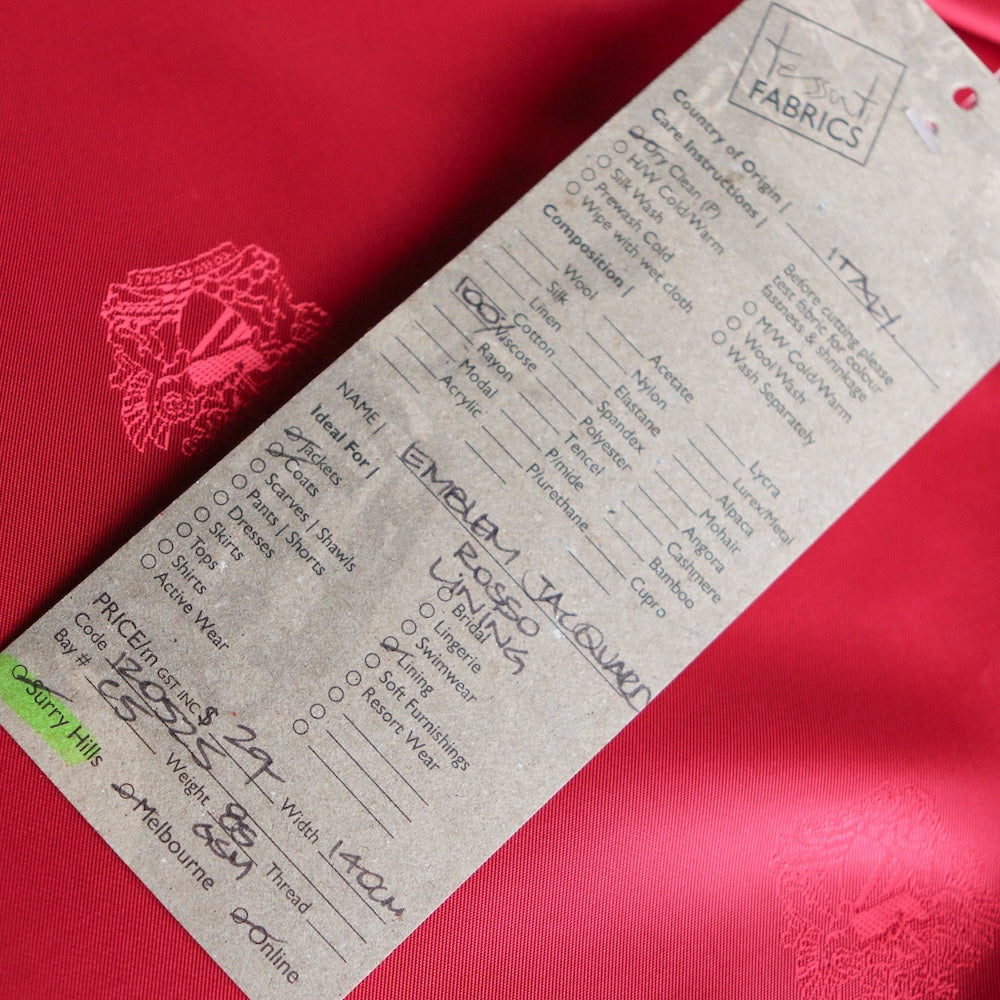 tessuti
FABRICS
Country of Origin | ITALY
Care Instructions |
Dry Clean (P)
H/W Cold/Warm
Silk Wash
Prewash Cold
Wipe with wet cloth
Before cutting please
test fabric for colour
fastness & shrinkage
M/W Cold/Warm
Wool Wash
Wash Separately
Composition |
Wool
Silk
Linen
Cotton
100% Viscose
Rayon
Modal
Acrylic
Acetate
Nylon
Elastane
Spandex
Polyester
Tencel
P/mide
P/urethane
Lycra
Lurex/Metal
Alpaca
Mohair
Angora
Cashmere
Bamboo
Cupro
NAME | EMBLEM JACQUARD
ROSSO
LINING
Ideal For |
Jackets
Coats
Scarves | Shawls
Pants | Shorts
Dresses
Skirts
Tops
Shirts
Active Wear
Bridal
Lingerie
Swimwear
Lining
Soft Furnishings
Resort Wear
PRICE/m GST INC $ 29
Code 120525 Width 140CM
Bay # C5 Weight 85 GSM Thread
Surry Hills Melbourne Online